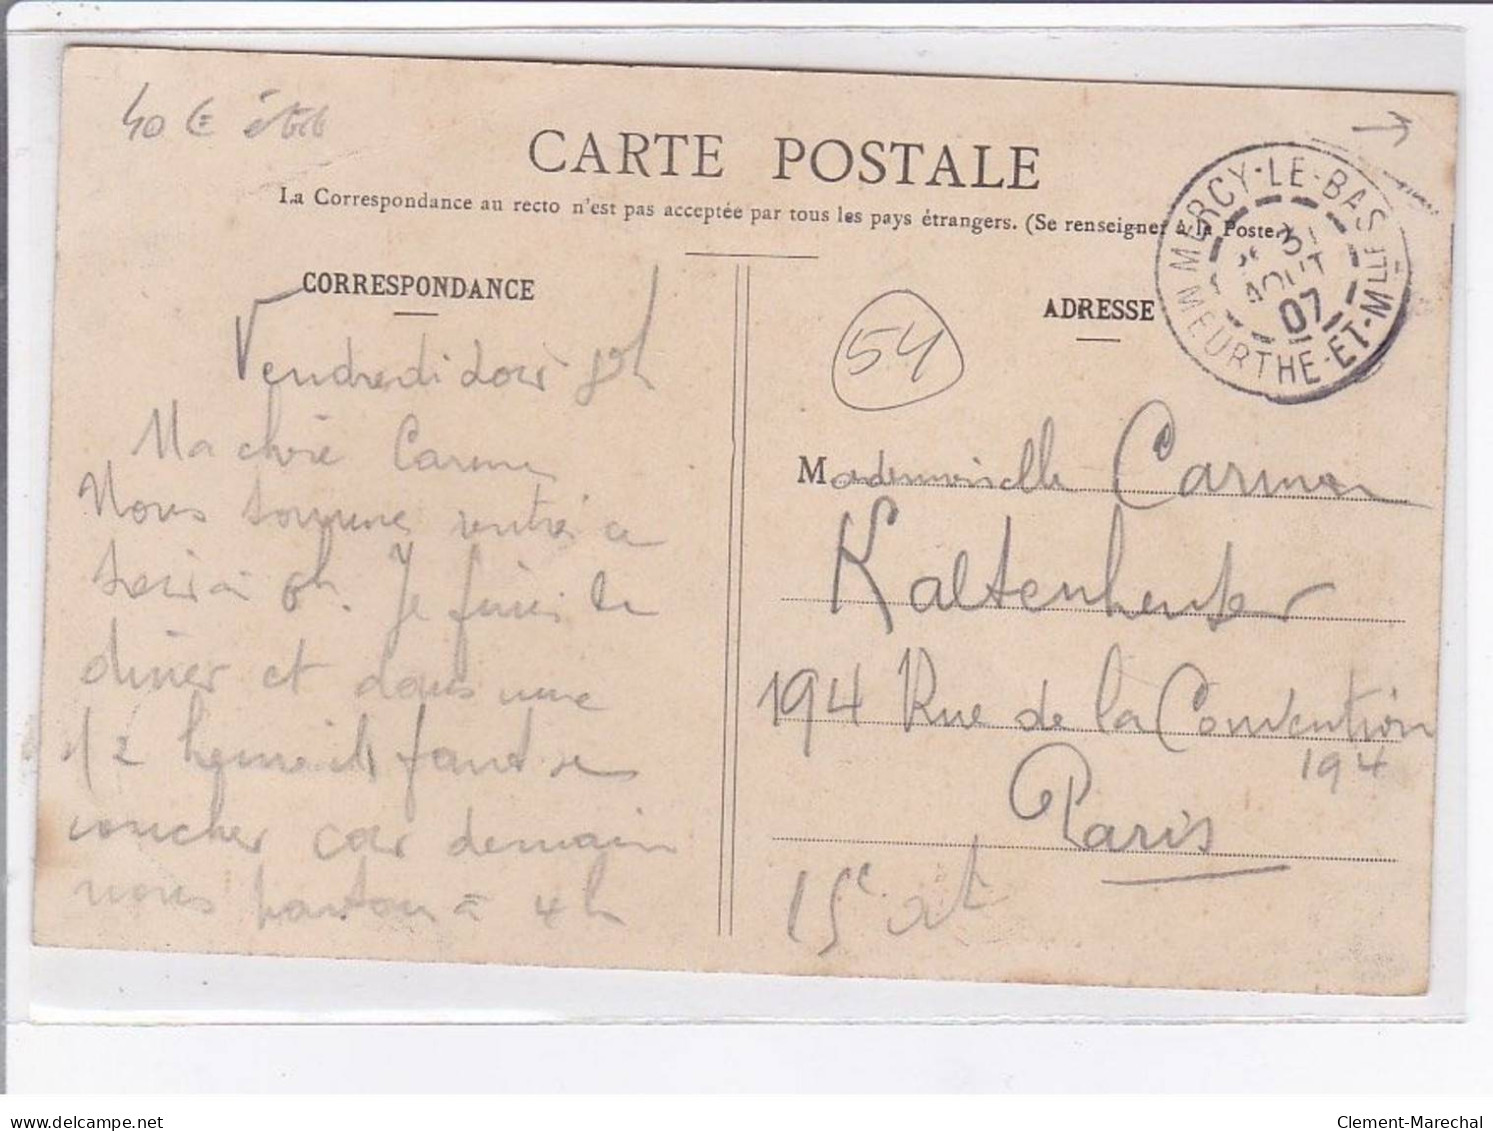 40 €
CARTE POSTALE
La Correspondance au recto n'est pas acceptée par tous les pays étrangers. (Se renseigner à la Poste.)
MERCY-LE-BAS
31
AOUT
07
MEURTHE-ET-MLLE
CORRESPONDANCE
Vendredi soir 8h
Ma chère Carmen
Nous somme rentré ce
soir à 6h. Je finis le
diner et dans une
1/2 heure il faut se
coucher car demain
nous parton à 4h
54
ADRESSE
Mademoiselle Carmen
Kaltenheuser
194 Rue de la Convention
194
Paris
15e art
delcampe.net
Clement-Marechal